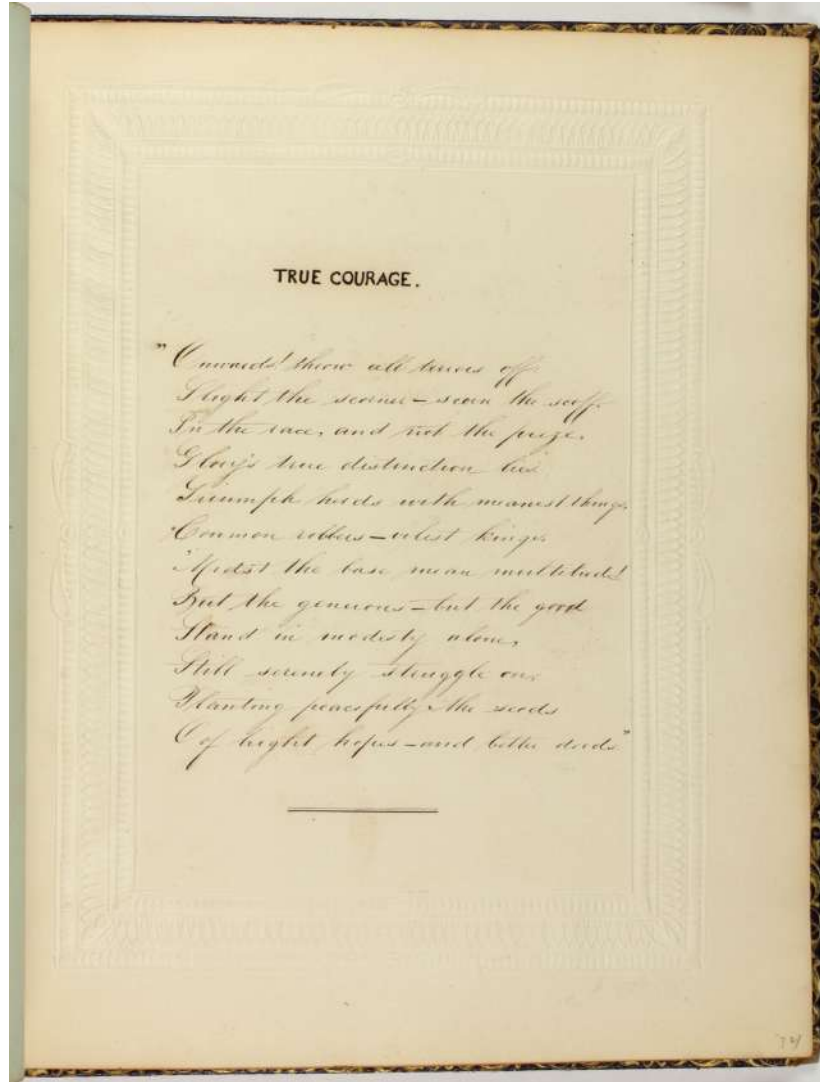 TRUE COURAGE.
"Onwards! throw all terrors off
Slight the scorner – scorn the scoff.
In the race, and not the prize,
Glory's true distinction lies.
Triumph herds with meanest things,
Common robbers – vilest kings,
'Midst the base mean multitude!
But the generous – but the good
Stand in modesty alone,
Still serenely struggle on,
Planting peacefully the seeds
Of bright hopes – and better deeds."